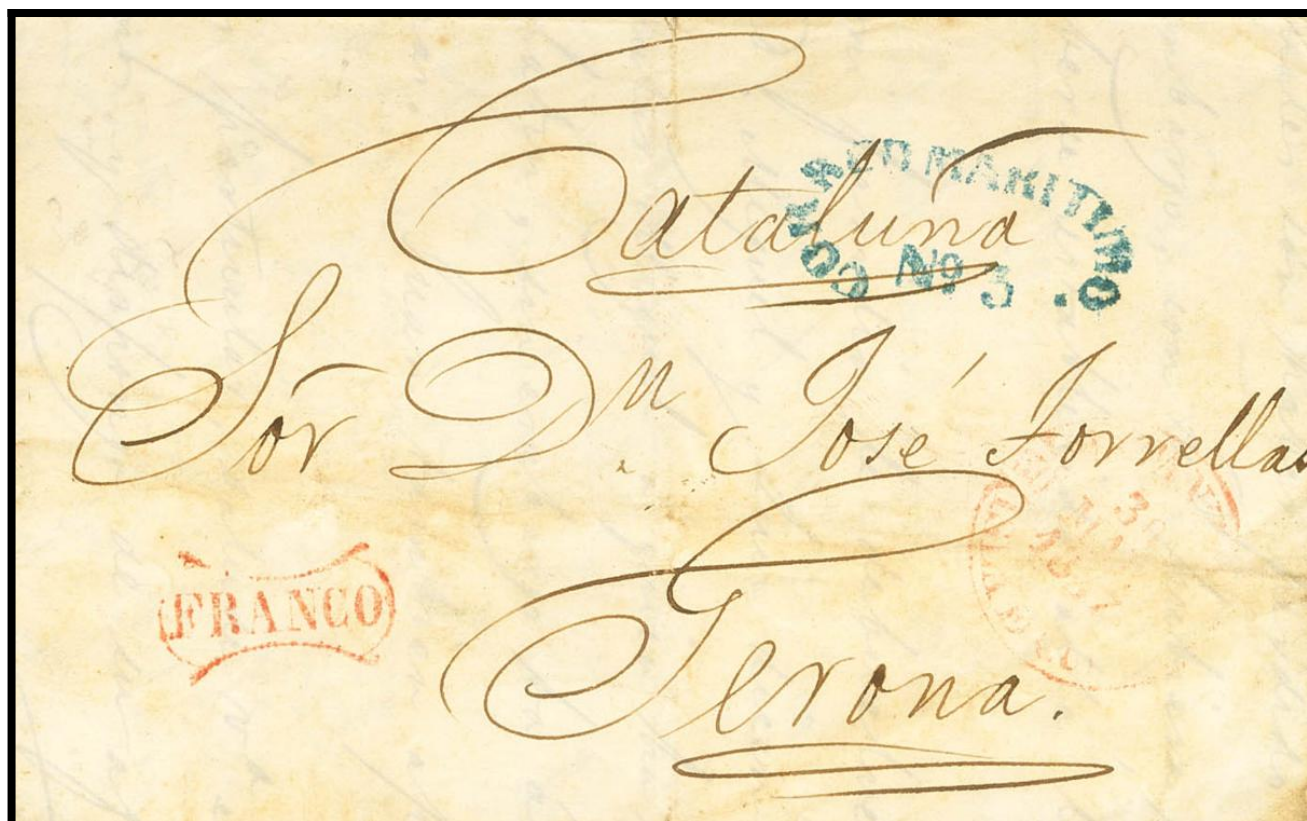 Cataluña
CORREO MARITIMO.
Nº 3
Sor Dn. José Torrellas
FRANCO
30
Gerona.